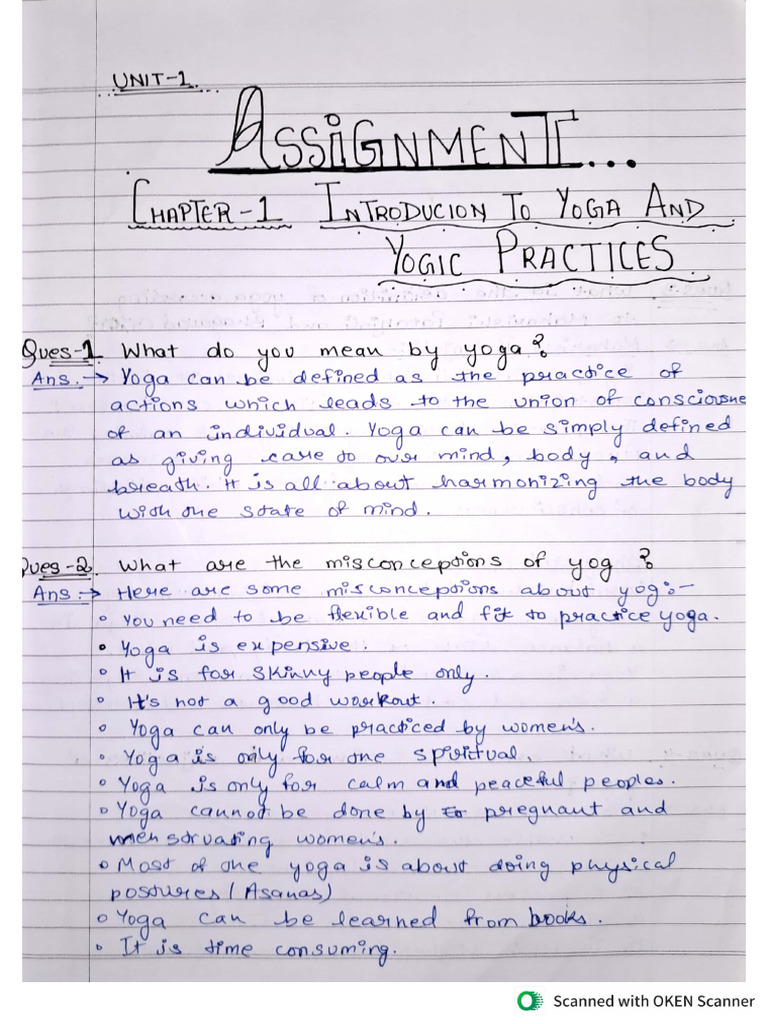 UNIT-1.
ASSIGNMENT...
CHAPTER-1 INTRODUCION TO YOGA AND
YOGIC PRACTICES
Ques-1. What do you mean by yoga?
Ans.→ Yoga can be defined as the practice of
actions which leads to the union of consciousne
of an individual. Yoga can be simply defined
as giving care to our mind, body, and
breath. It is all about harmonizing the body
with the state of mind.
Ques-2. What are the misconceptions of yog?
Ans:→ Here are some misconceptions about yog:-
• You need to be flexible and fit to practice yoga.
• Yoga is expensive.
• It is for skinny people only.
• It's not a good workout.
• Yoga can only be practiced by women's.
• Yoga is only for the spiritual.
• Yoga is only for calm and peaceful peoples.
• Yoga cannot be done by to pregnant and
menstruating women's.
• Most of the yoga is about doing physical
postures (Asanas)
• Yoga can be learned from books.
• It is time consuming.
Scanned with OKEN Scanner